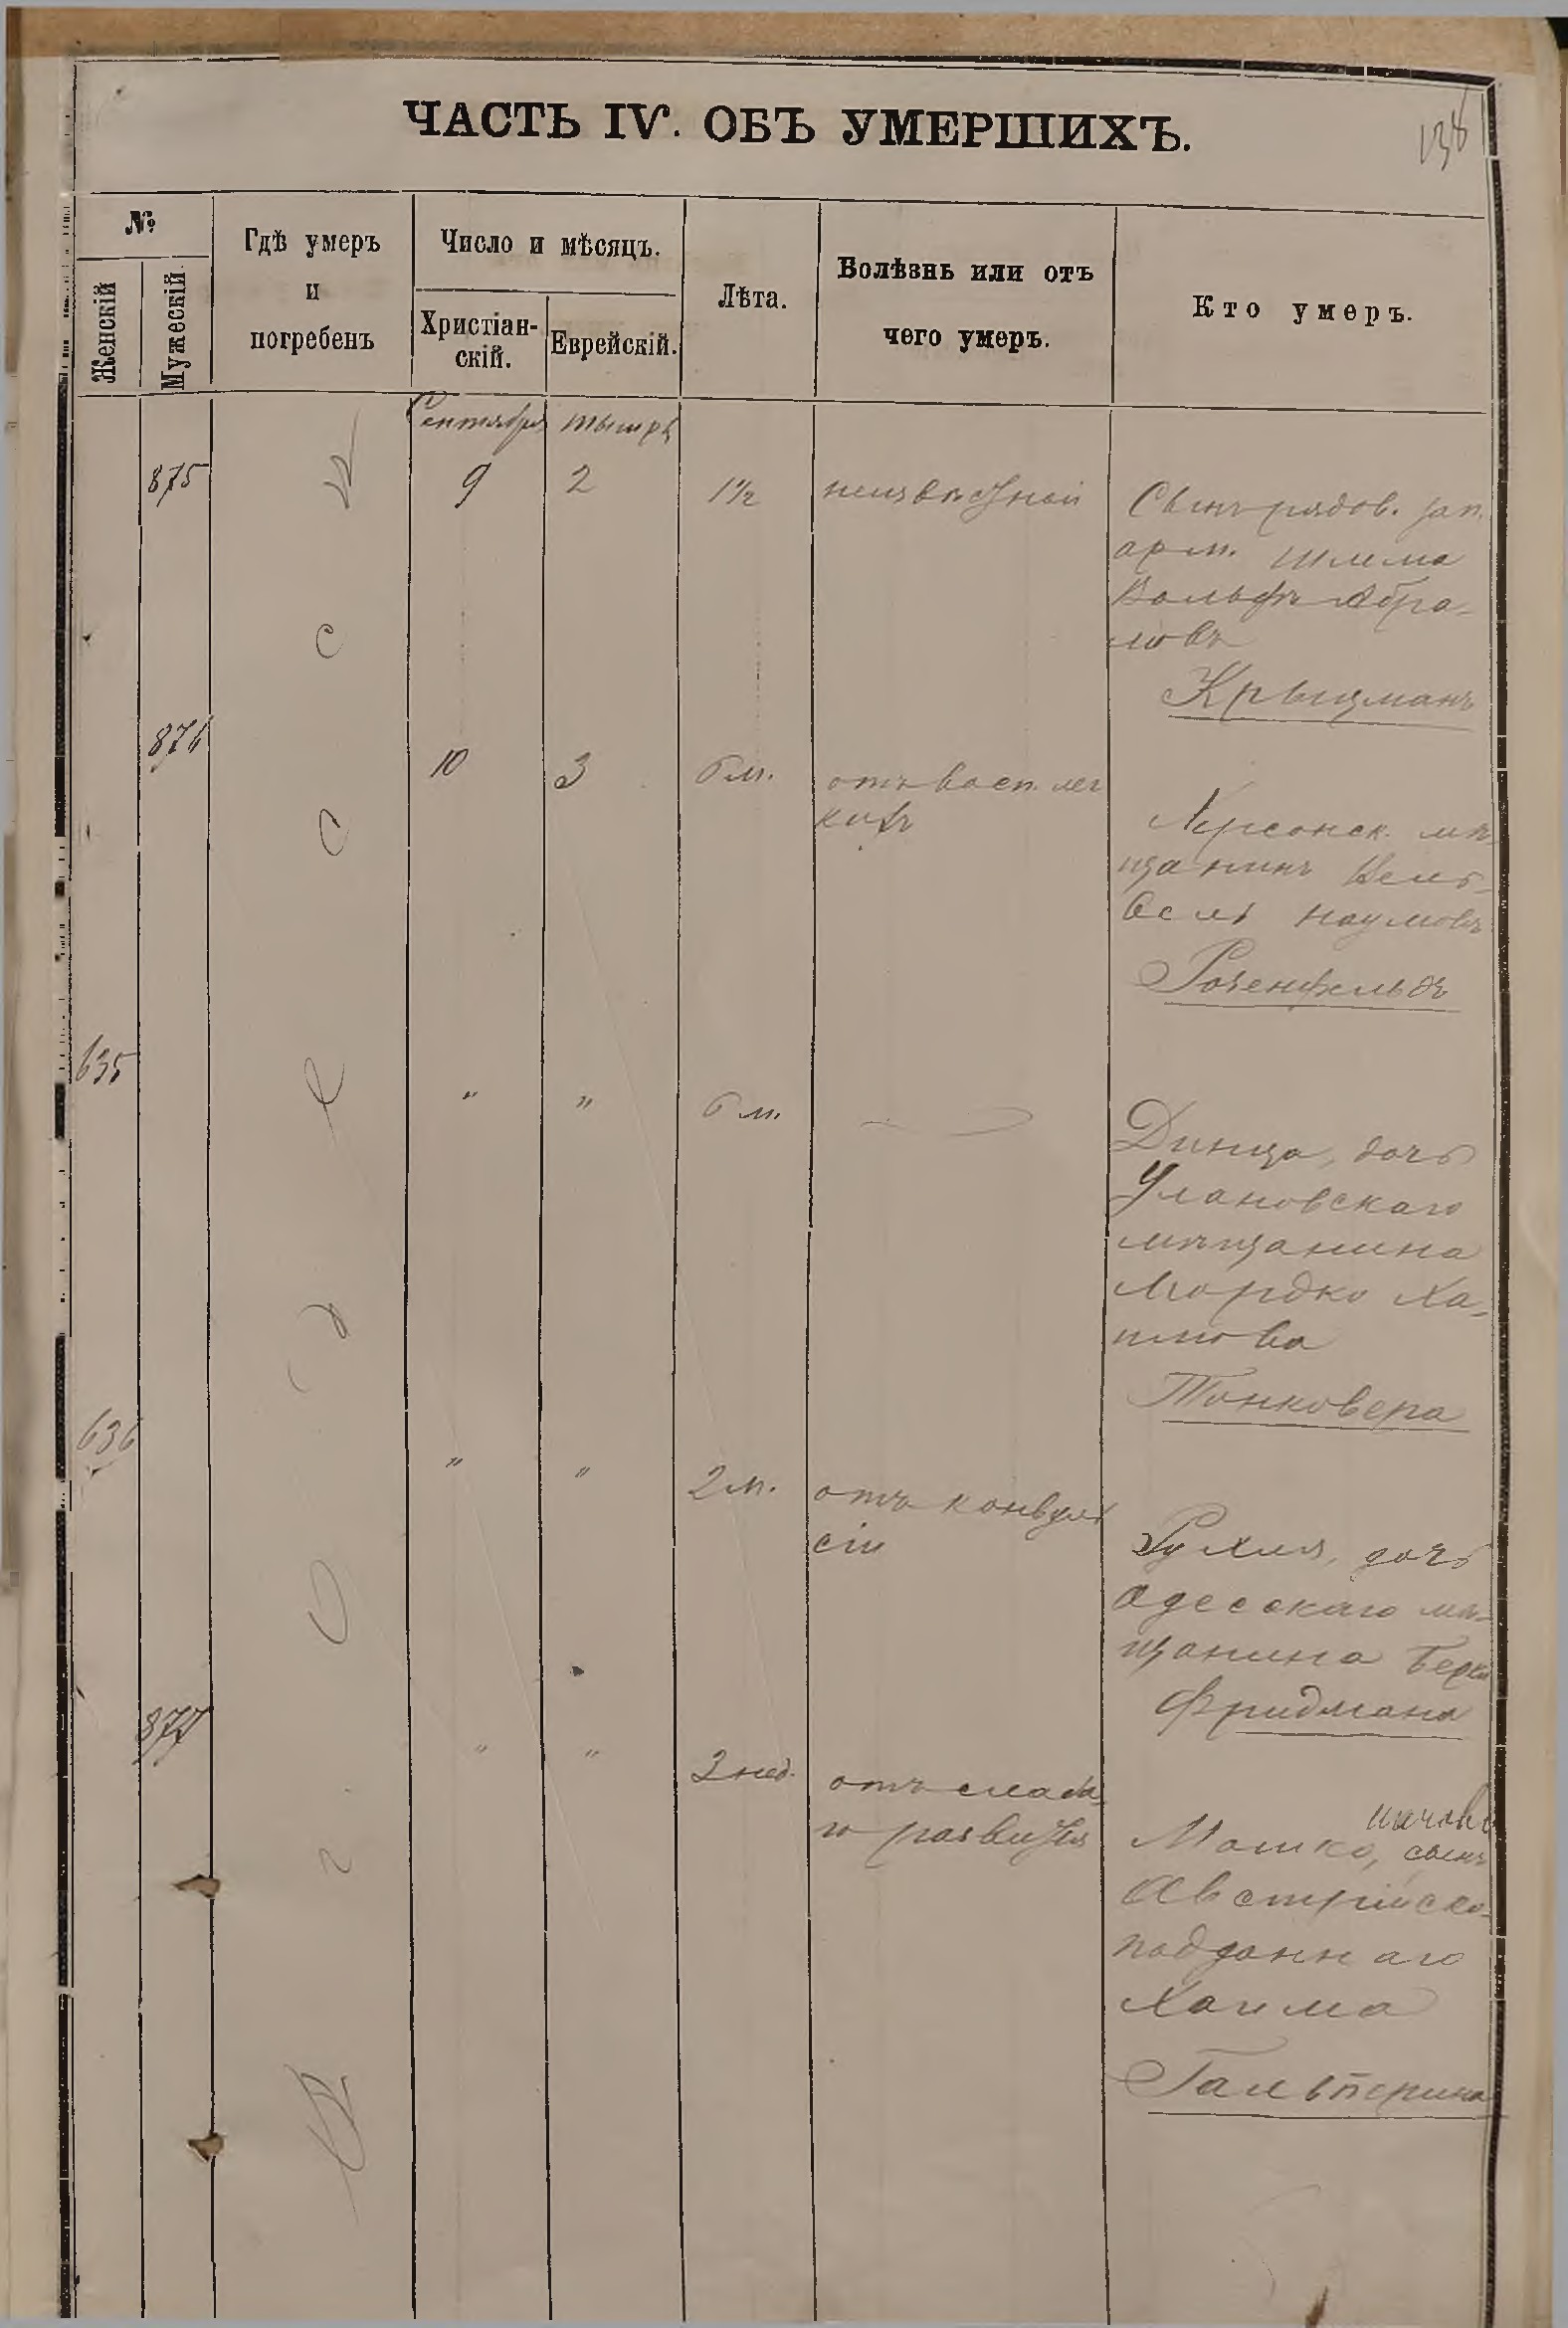 ЧАСТЬ IV. ОБЪ УМЕРШИХЪ.
138
№
Женскій
Мужескій.
Гдѣ умеръ
и
погребенъ
Число и мѣсяцъ.
Христіан-
скій.
Еврейскій.
Лѣта.
Болѣзнь или отъ
чего умеръ.
Кто умеръ.
Сентября тышрѣ
875 9 2 1½ неизвѣстной
Сынъ рядов. зап.
арм. Шлема
Вольфъ Абра-
мовъ
Крыцманъ
876 10 3 6 м. отъ восп. лег
кихъ
Херсонск. мѣ-
щанинъ Вель-
весль Наумовъ
Розенфельдъ
635 " " 6 м.
Динца, дочь
Улановскаго
мѣщанина
Мордко Ха-
имова
Тонковера
636 " " 2 м. отъ конвуль
сіи
Рухля, дочь
Одесскаго мѣ-
щанина Берки
Фридмана
877 " " 3 нед. отъ слаба-
го развитія
Мошко, сынъ
Австрійско-
подданнаго
Хаима
Гальперина